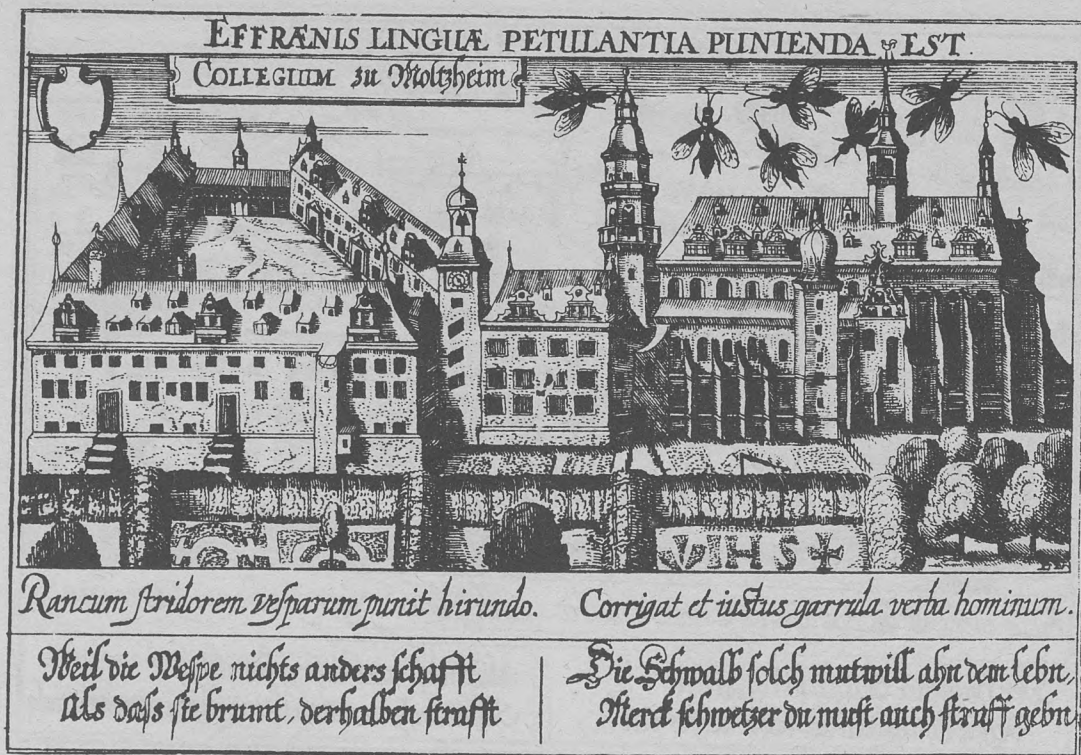 EFFRÆNIS LINGUÆ PETULANTIA PUNIENDA EST.
COLLEGIUM zu Moltzheim
VIHS
Rancum stridorem vesparum punit hirundo. Corrigat et iustus garrula verba hominum.
Weil die Wespe nichts anders schafft
Als dass sie brumt, derhalben strafft
Die Schwalb solch mutwill ahn dem lebn,
Merck schwetzer du must auch straff gebn